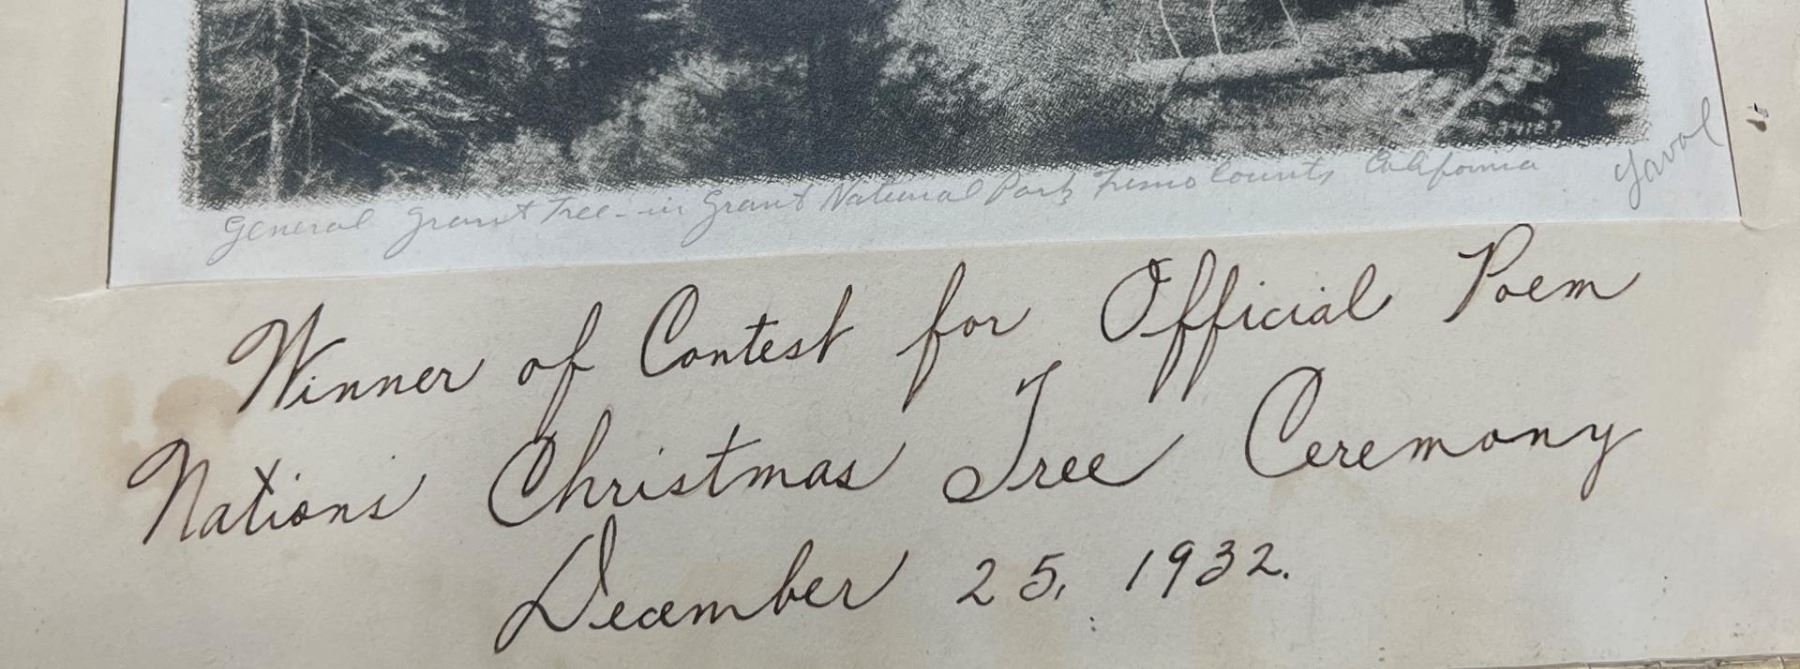 34187
General Grant Tree - in Grant National Park Fresno County California
Laval
Winner of Contest for Official Poem
Nations Christmas Tree Ceremony
December 25, 1932.